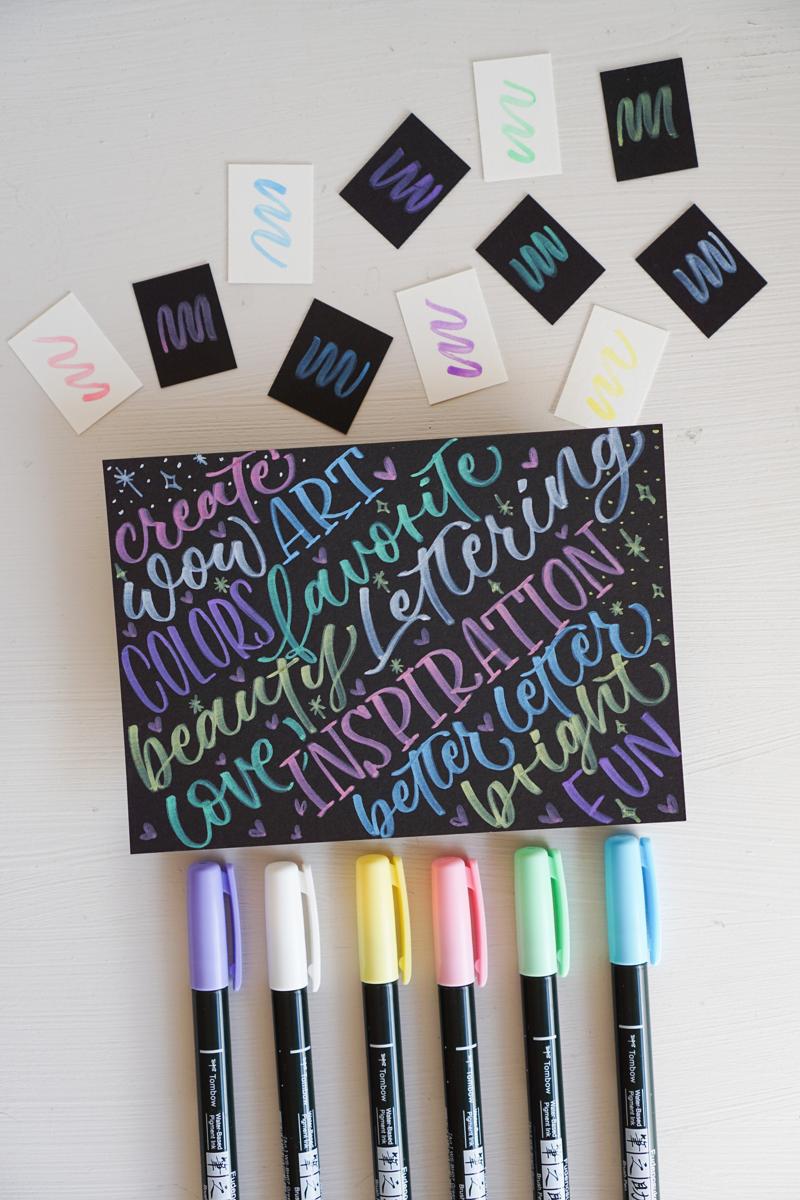 create
wow ART
COLORS favorite
beauty Lettering
love INSPIRATION
better letter
bright
FUN
Tombow
Water-Based
Pigment Ink
Tombow
Water-Based
Pigment Ink
Tombow
Water-Based
Pigment Ink
Tombow
Water-Based
Pigment Ink
Tombow
Water-Based
Pigment Ink
Tombow
Water-Based
Pigment Ink